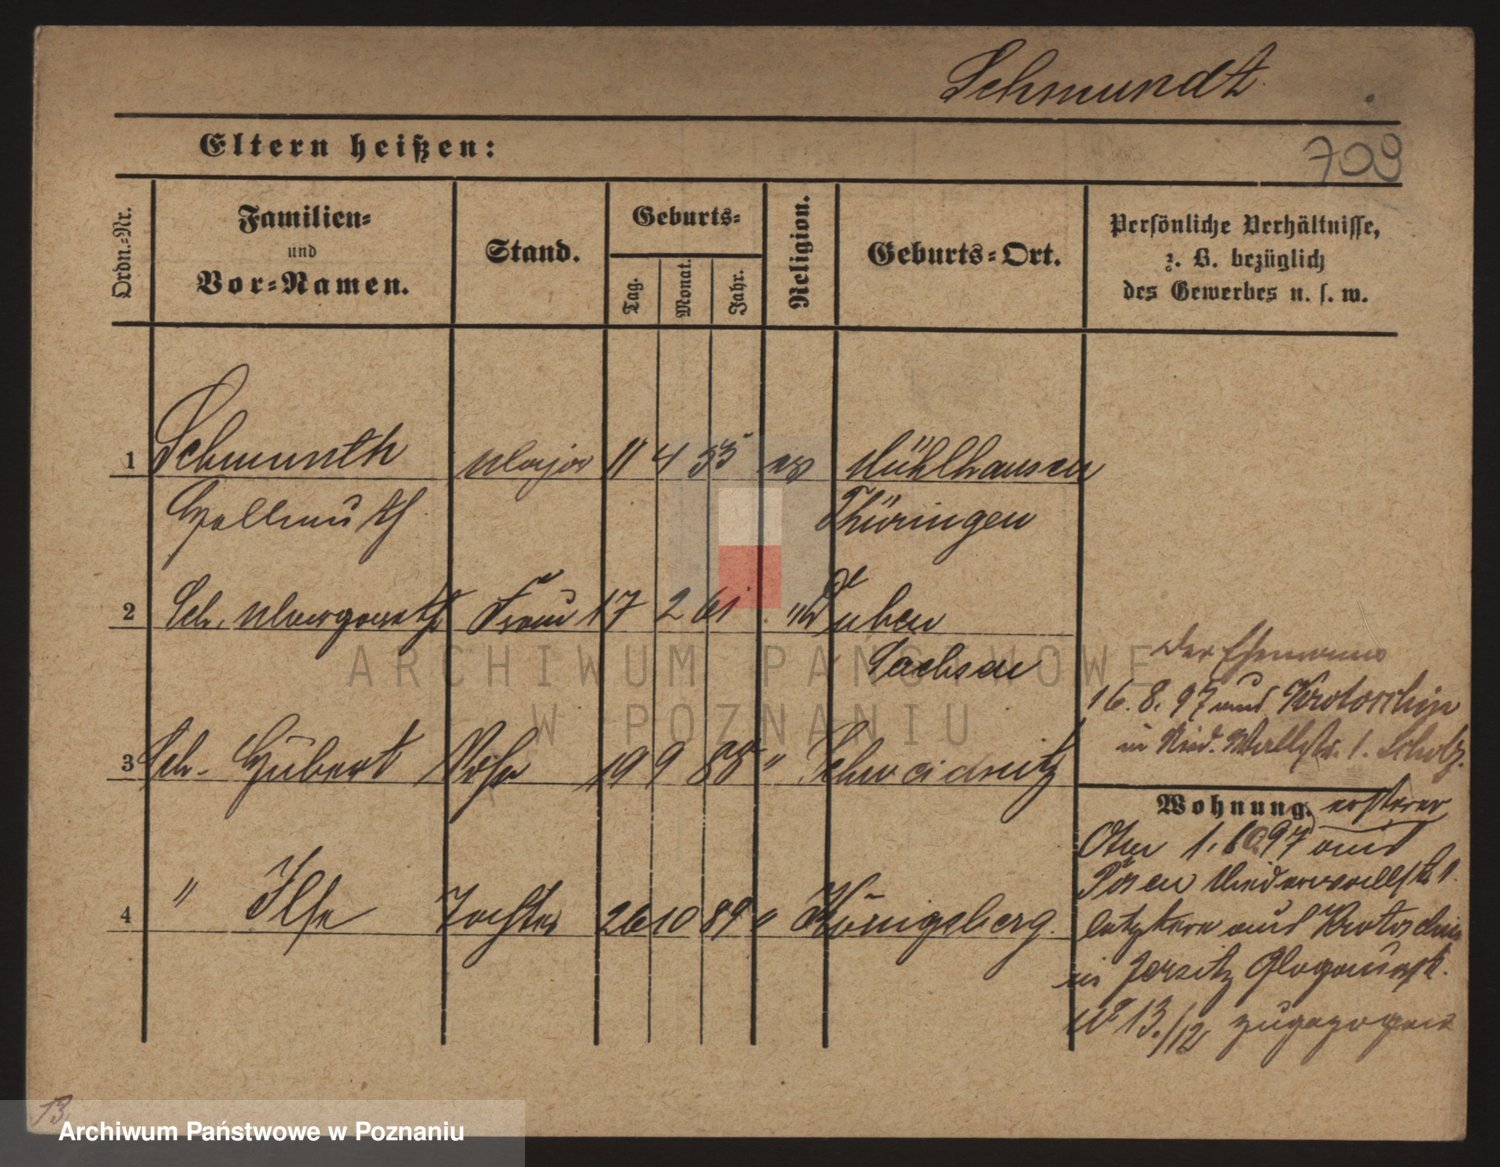 Schmundt.
709
Eltern heißen:
Ordn.-Nr.
Familien-
und
Vor-Namen.
Stand.
Geburts-
Tag.
Monat.
Jahr.
Religion.
Geburts-Ort.
Persönliche Verhältnisse,
z. B. bezüglich
des Gewerbes u. s. w.
1 Schmundt Major 11 4 53 ev Mühlhausen
Hellmuth Thüringen
2 Sch. Margareth Frau 17 2 61 " Luben
Sachsen
3 Sch. Hubert Sohn 19 9 88 " Schweidnitz
4 " Ilse Tochter 26 10 89 " Königsberg.
Der Ehemann
16. 8. 97 aus Krotoschin
in Nied. Wallstr. 1. Scholz.
Wohnung. ersterer
1. 97 aus
Posen Niederwallstr 1.
letztere aus Krotoschin
in Jersitz Glogauerstr.
No 13./12 zugezogen
13.
ARCHIWUM PAŃSTWOWE
W POZNANIU
Archiwum Państwowe w Poznaniu